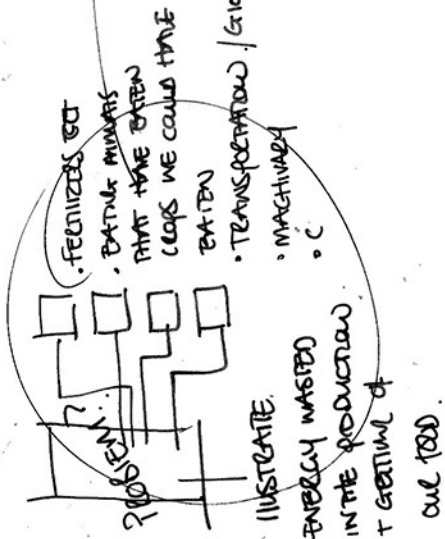 PROBLEM?
ILLUSTRATE
ENERGY WASTED
IN THE PRODUCTION
+ GETTING of
OUR FOOD.
• FERTILIZERS
• EATING ANIMALS
THAT HAVE EATEN
CROPS WE COULD HAVE
EATEN
• TRANSPORTATION /
• MACHINARY
• C